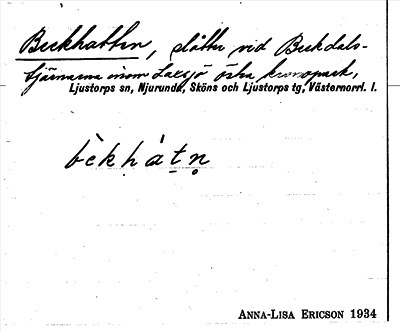 Beckhatten, slåtter vid Beckdals-
tjärnarna inom Laxsjö östra kronopark,
Ljustorps sn, Njurunda, Sköns och Ljustorps tg, Västernorrl. l.
bèkhátn̥
ANNA-LISA ERICSON 1934